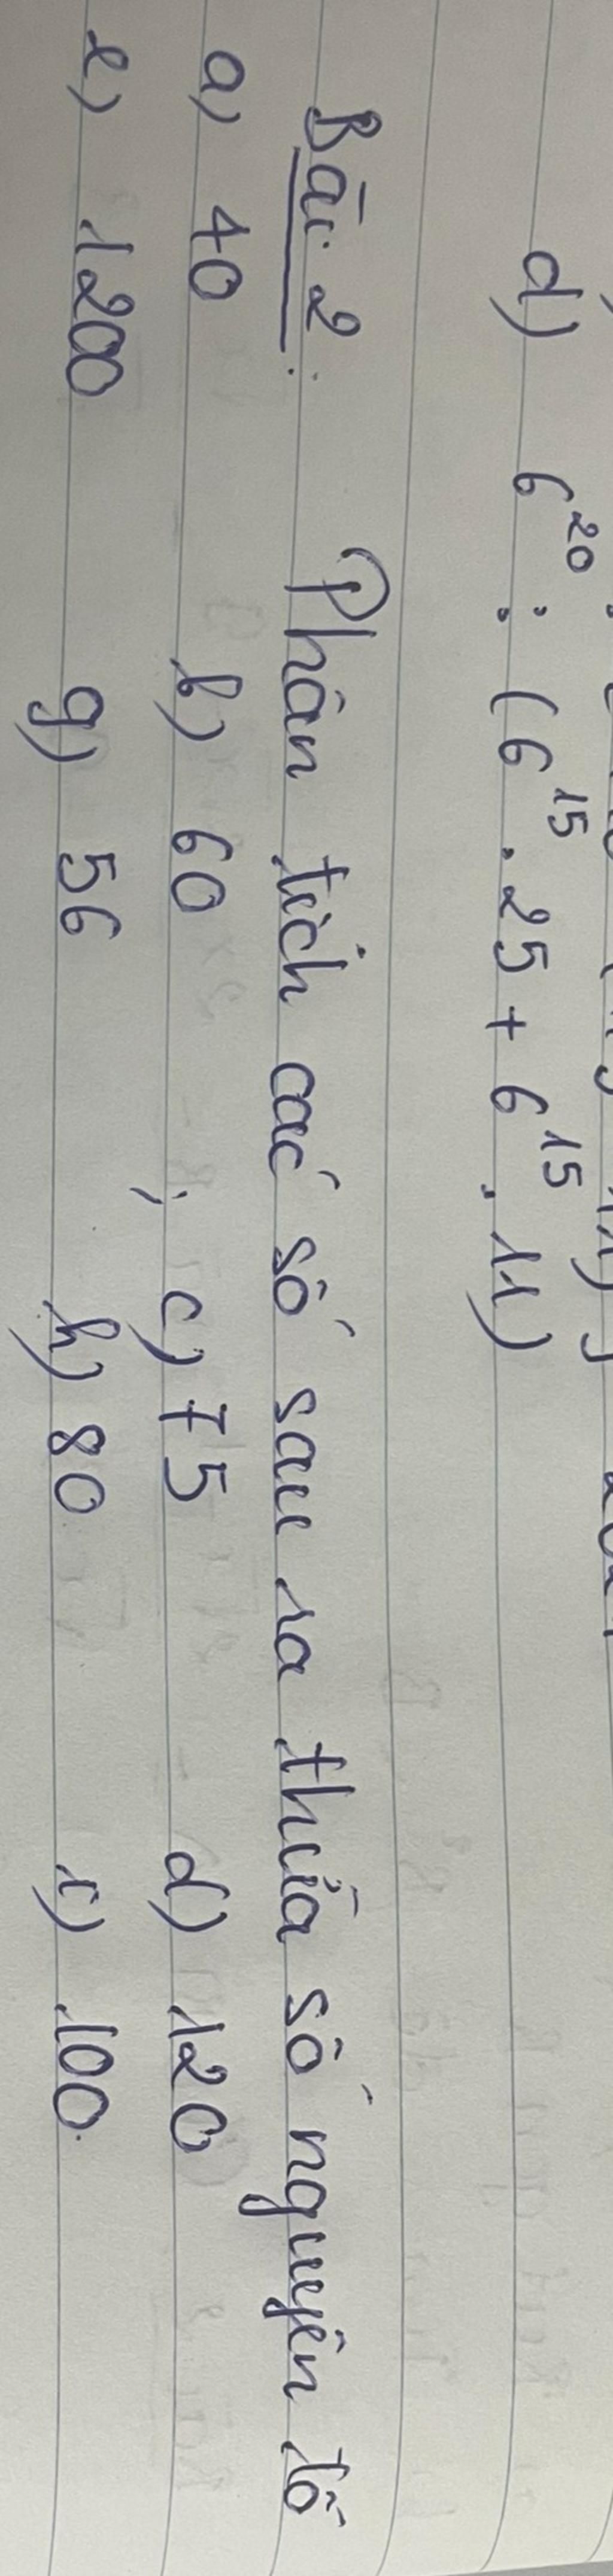 d) 6²⁰ : (6¹⁵ . 25 + 6¹⁵ . 11)
Bài 2: Phân tích các số sau ra thừa số nguyên tố
a) 40 b) 60 ; c) 75 d) 120
e) 1200 g) 56 h) 80 i) 100.